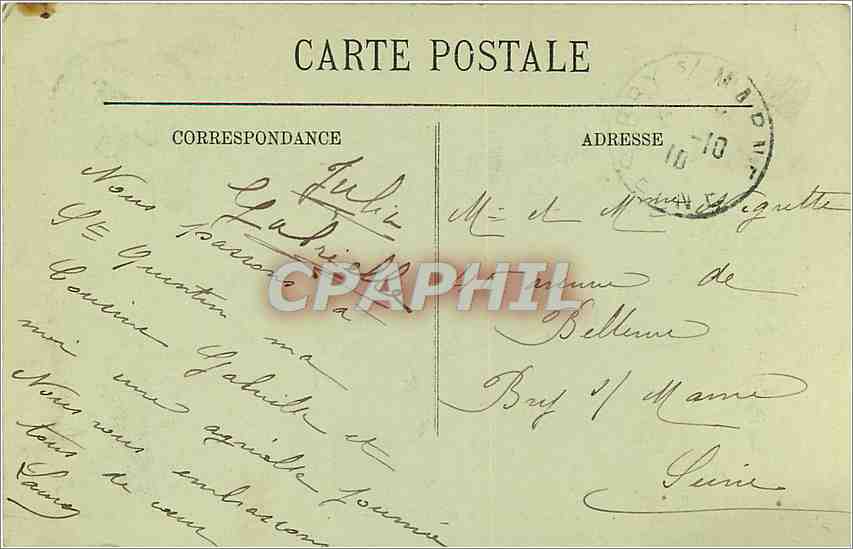 CARTE POSTALE
CORRESPONDANCE
ADRESSE
BRY S/ MARNE
10
Julia
Gabrielle
Nous passons a
St Quentin ma
Cousine Gabrielle et
moi une agréable journée
Nous vous embrassons
tous de cœur
M et Mme
avenue de
Bellevue
Bry s/ Marne
Seine
CPAPHIL